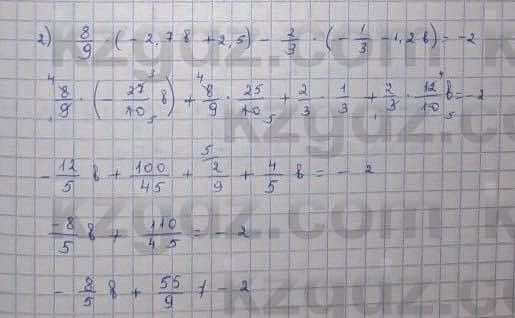 2) 8/9 · (-2,7 в + 2,5) - 2/3 · (-1/3 - 1,2 в) = -2
8/9 · (-27/10 в) + 8/9 · 25/10 + 2/3 · 1/3 + 2/3 · 12/10 в = -2
-12/5 в + 100/45 + 2/9 + 4/5 в = -2
-8/5 в + 110/45 = -2
-8/5 в + 55/9 ≠ -2
kzgdz.com